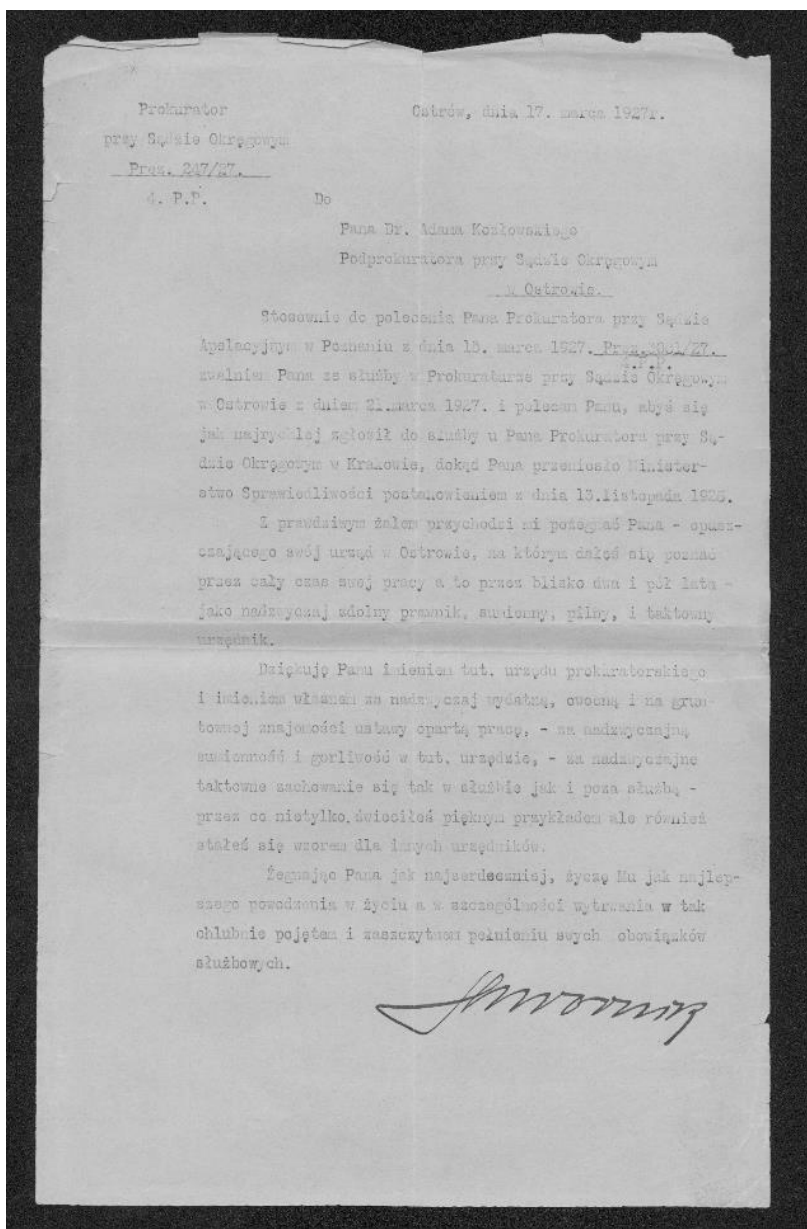 Prokurator
Ostrów, dnia 17. marca 1927r.
przy Sądzie Okręgowym
Prez. 247/27.
4. P.P.
Do
Pana Dr. Adama Kozłowskiego
Podprokuratora przy Sądzie Okręgowym
w Ostrowie.
Stosownie do polecenia Pana Prokuratora przy Sądzie
Apelacyjnym w Poznaniu z dnia 15. marca 1927. Prez. /27.
4.P.P.
zwalniam Pana ze służby w Prokuraturze przy Sądzie Okręgowym
w Ostrowie z dniem 21.marca 1927. i polecam Panu, abyś się
jak najrychlej zgłosił do służby u Pana Prokuratora przy Są-
dzie Okręgowym w Krakowie, dokąd Pana przeniosło Minister-
stwo Sprawiedliwości postanowieniem z dnia 13.listopada 1926.
Z prawdziwym żalem przychodzi mi pożegnać Pana - opusz-
czającego swój urząd w Ostrowie, na którym dałeś się poznać
przez cały czas swej pracy a to przez blizko dwa i pół lata -
jako nadzwyczaj zdolny prawnik, sumienny, pilny, i taktowny
urzędnik.
Dziękuję Panu imieniem tut. urzędu prokuratorskiego
i imieniem własnem za nadzwyczaj wydatną, owocną i na grun-
townej znajomości ustawy opartą pracę, - za nadzwyczajną
sumienność i gorliwość w tut. urzędzie, - za nadzwyczajne
taktowne zachowanie się tak w służbie jak i poza służbą -
przez co nietylko świeciłeś pięknym przykładem ale również
stałeś się wzorem dla innych urzędników.
Żegnając Pana jak najserdeczniej, życzę Mu jak najlep-
szego powodzenia w życiu a w szczególności wytrwania w tak
chlubnie pojętem i zaszczytnem pełnieniu swych obowiązków
służbowych.